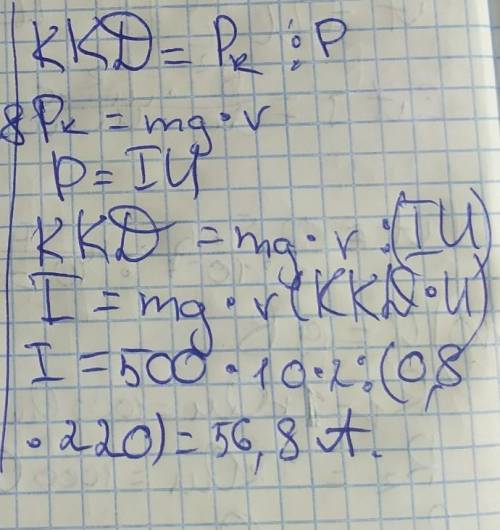 ККД = Pк : P
Pк = mg · v
P = IU
ККД = mg · v : (IU)
I = mg · v (ККД · U)
I = 500 · 10 · 2 : (0,8
· 220) = 56,8 A.